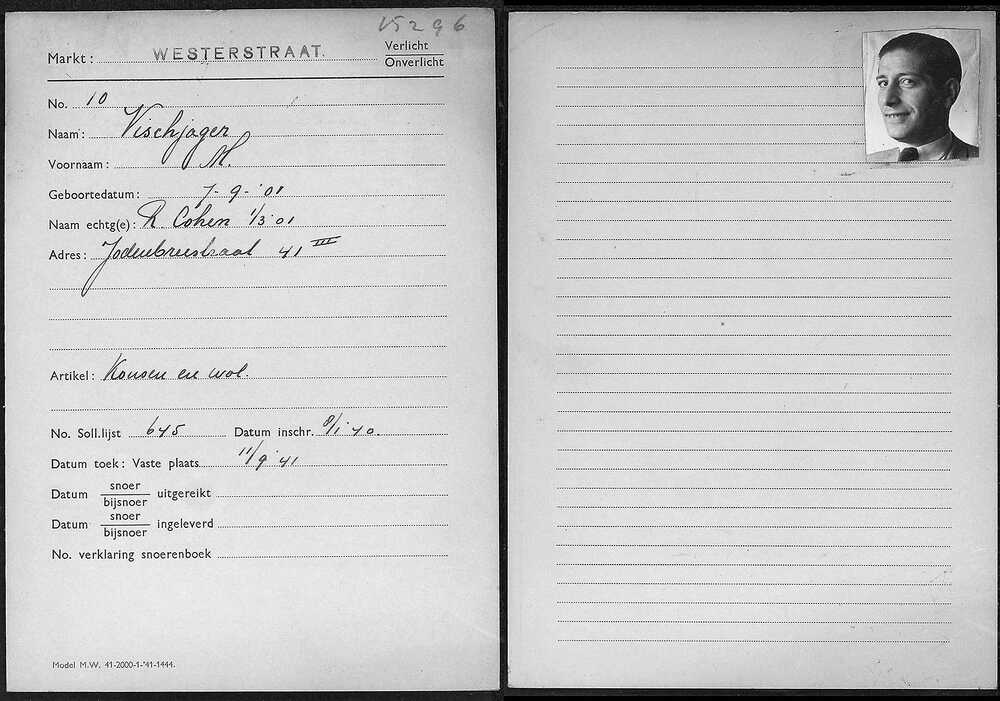 15296
Markt: WESTERSTRAAT.
Verlicht
Onverlicht
No. 10
Naam: Vischjager
Voornaam: M.
Geboortedatum: 7-9-'01
Naam echtg(e): R. Cohen 1/3'01
Adres: Jodenbreestraat 41 III
Artikel: Kousen en wol.
No. Soll.lijst 645 Datum inschr. 8/1'40.
Datum toek: Vaste plaats 11/9'41
Datum snoer/bijsnoer uitgereikt
Datum snoer/bijsnoer ingeleverd
No. verklaring snoerenboek
Model M.W. 41-2000-1-'41-1444.